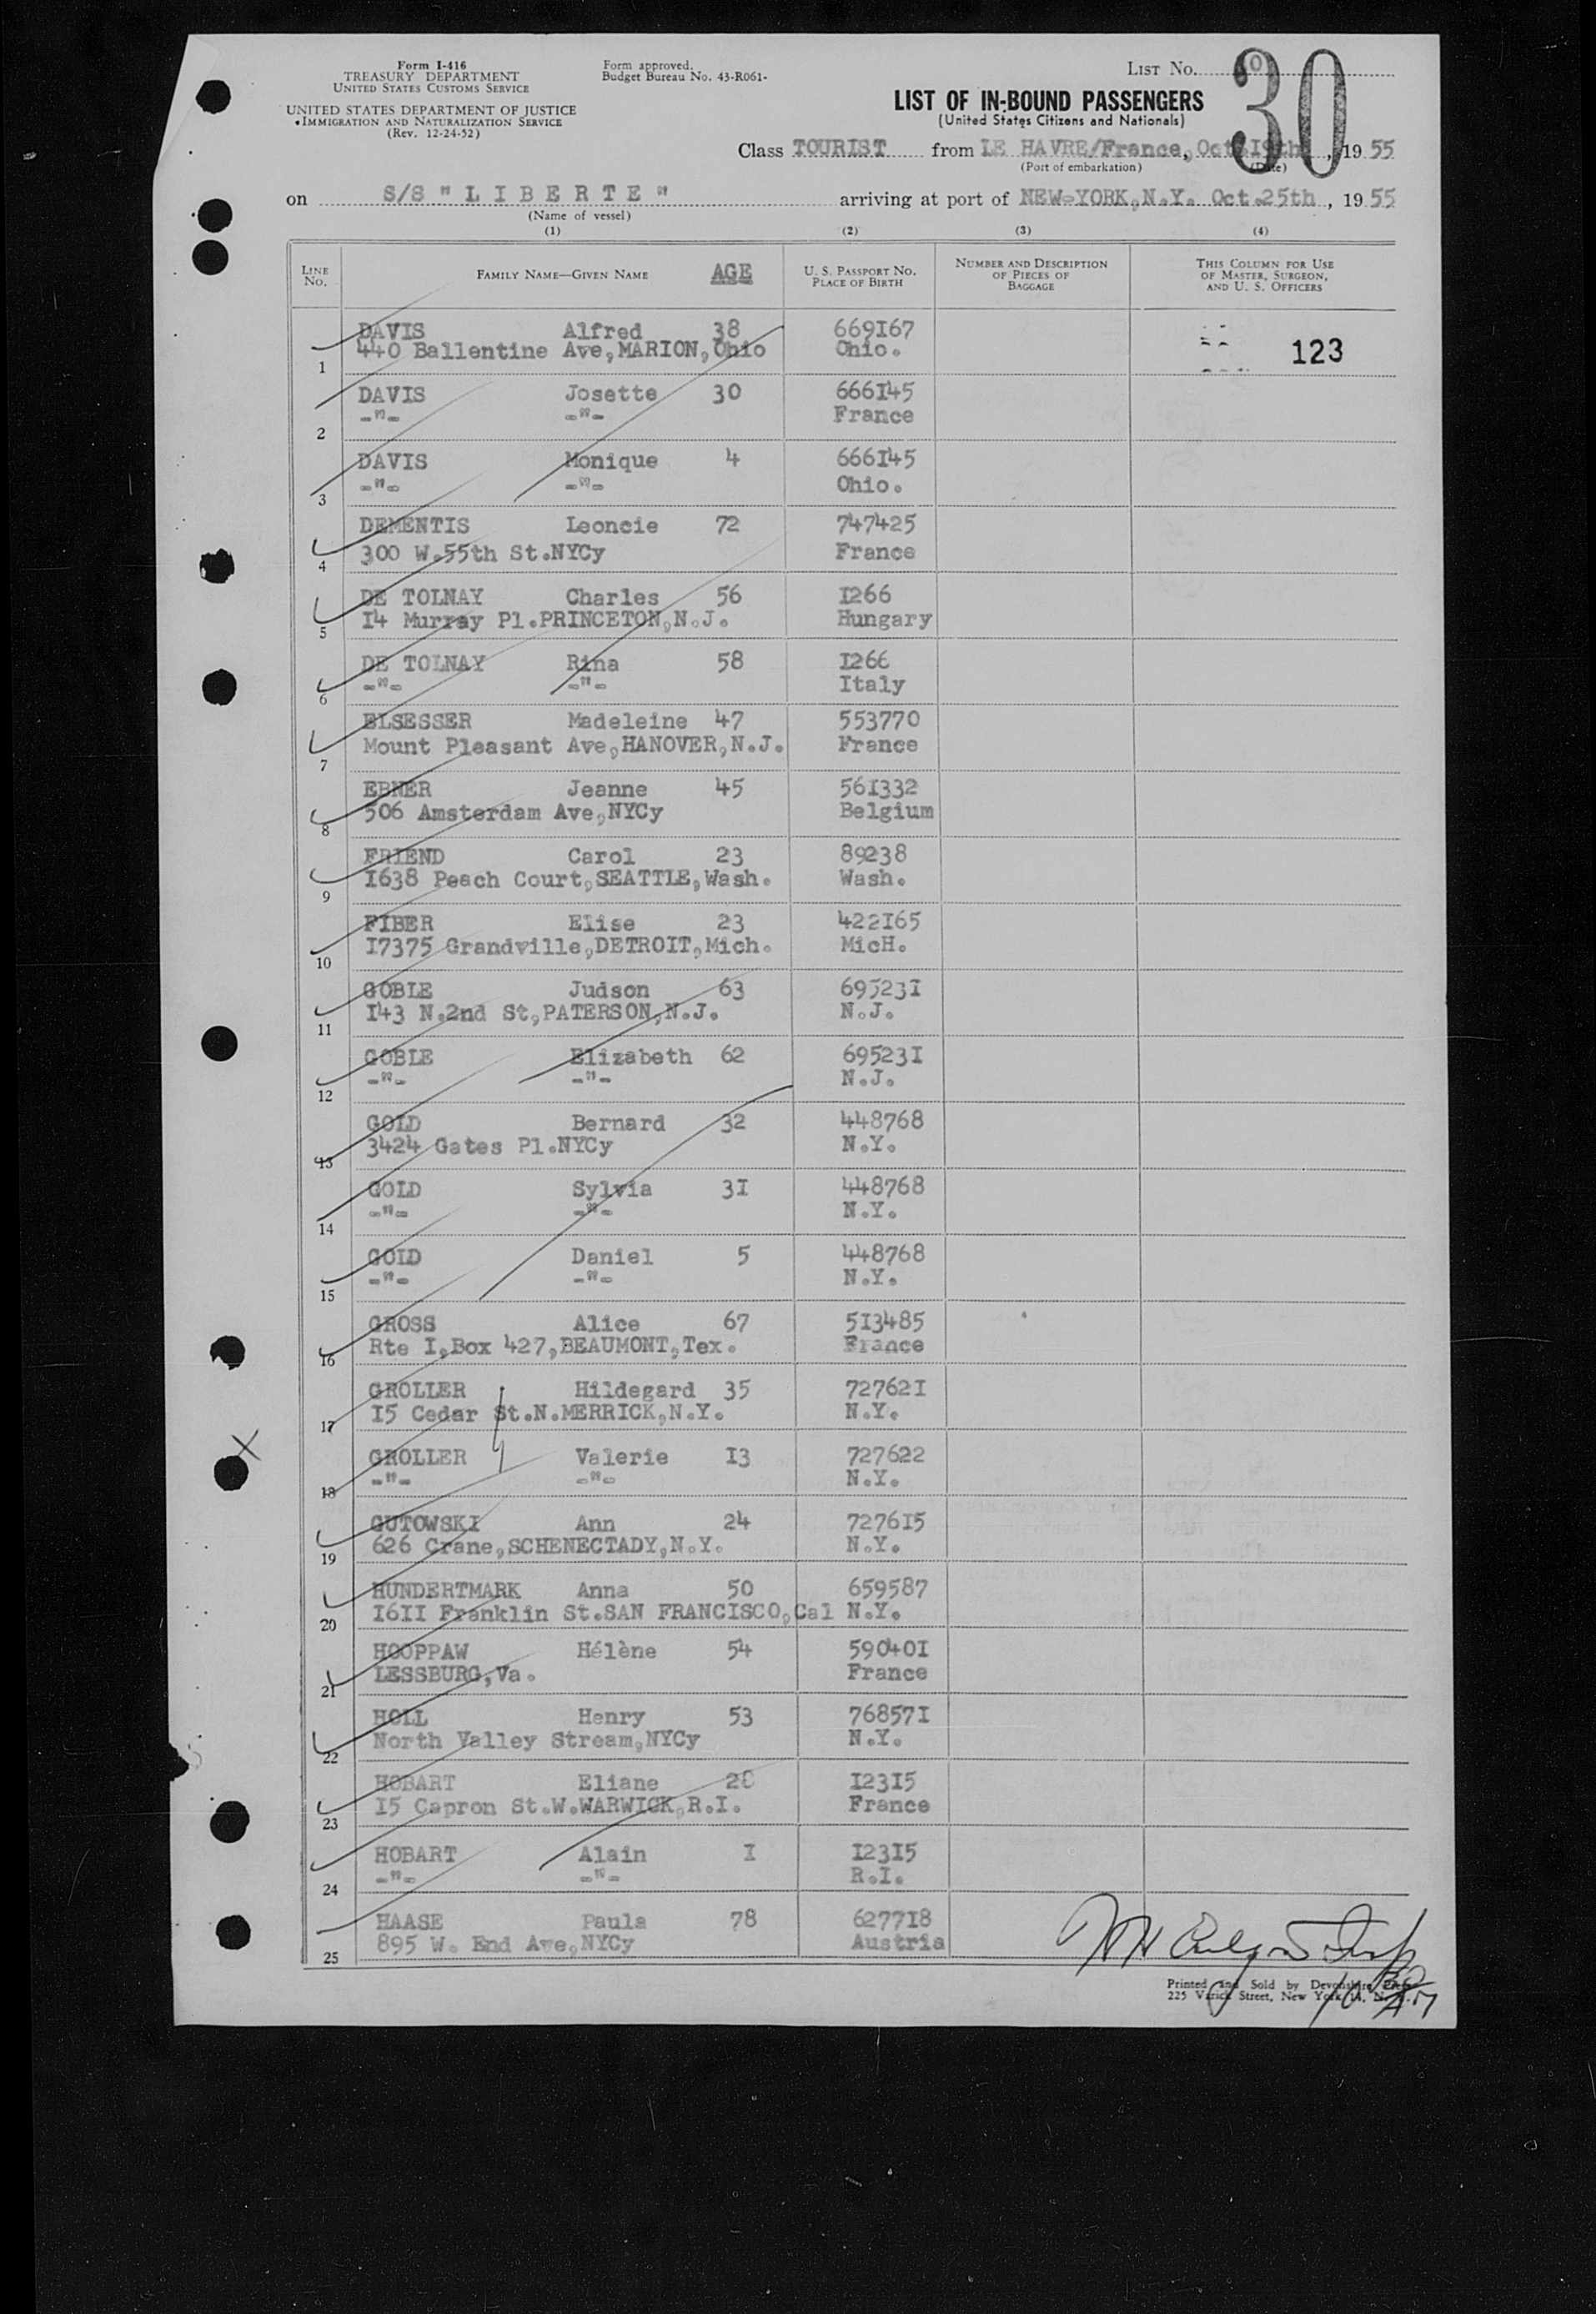 Form I-416
TREASURY DEPARTMENT
UNITED STATES CUSTOMS SERVICE
UNITED STATES DEPARTMENT OF JUSTICE
IMMIGRATION AND NATURALIZATION SERVICE
(Rev. 12-24-52)
Form approved.
Budget Bureau No. 43-R061-
LIST No.
30
LIST OF IN-BOUND PASSENGERS
(United States Citizens and Nationals)
Class TOURIST from LE HAVRE/France, Oct.19th, 1955
(Port of embarkation) (Date)
on S/S "LIBERTE" arriving at port of NEW-YORK,N.Y. Oct.25th, 1955
(Name of vessel)
(1) (2) (3) (4)
LINE No. FAMILY NAME—GIVEN NAME AGE U. S. PASSPORT NO. PLACE OF BIRTH NUMBER AND DESCRIPTION OF PIECES OF BAGGAGE THIS COLUMN FOR USE OF MASTER, SURGEON, AND U. S. OFFICERS
DAVIS Alfred 38 669I67
1 440 Ballentine Ave,MARION,Ohio Ohio. 123
DAVIS Josette 30 666I45
2 -"- -"- France
DAVIS Monique 4 666I45
3 -"- -"- Ohio.
DEMENTIS Leoncie 72 747425
4 300 W.55th St.NYCy France
DE TOLNAY Charles 56 I266
5 I4 Murray Pl.PRINCETON,N.J. Hungary
DE TOLNAY Rina 58 I266
6 -"- -"- Italy
ELSESSER Madeleine 47 553770
7 Mount Pleasant Ave,HANOVER,N.J. France
EBNER Jeanne 45 56I332
8 506 Amsterdam Ave,NYCy Belgium
FRIEND Carol 23 89238
9 I638 Peach Court,SEATTLE,Wash. Wash.
FIBER Elise 23 422I65
10 I7375 Grandville,DETROIT,Mich. MicH.
GOBLE Judson 63 69523I
11 I43 N.2nd St,PATERSON,N.J. N.J.
GOBLE Elizabeth 62 69523I
12 -"- -"- N.J.
GOLD Bernard 32 448768
13 3424 Gates Pl.NYCy N.Y.
GOLD Sylvia 3I 448768
14 -"- -"- N.Y.
GOLD Daniel 5 448768
15 -"- -"- N.Y.
GROSS Alice 67 5I3485
16 Rte I,Box 427,BEAUMONT,Tex. France
GROLLER Hildegard 35 72762I
17 I5 Cedar St.N.MERRICK,N.Y. N.Y.
GROLLER Valerie I3 727622
18 -"- -"- N.Y.
GUTOWSKI Ann 24 7276I5
19 626 Crane,SCHENECTADY,N.Y. N.Y.
HUNDERTMARK Anna 50 659587
20 I6II Franklin St.SAN FRANCISCO,Cal N.Y.
HOOPPAW Hélène 54 59040I
21 LESSBURG,Va. France
HOLL Henry 53 76857I
22 North Valley Stream,NYCy N.Y.
HOBART Eliane I23I5
23 I5 Capron St.W.WARWICK,R.I. France
HOBART Alain I I23I5
24 -"- -"- R.I.
HAASE Paula 78 6277I8
25 895 W. End Ave,NYCy Austria
Printed and Sold by Devonshire
225 Varick Street, New York 14, N.Y.